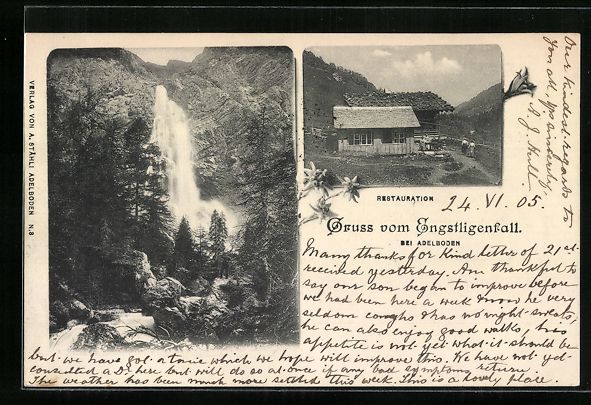 VERLAG VON A. STÄHLI ADELBODEN N.8
RESTAURATION
Gruss vom Engstligenfall.
BEI ADELBODEN
24. VI. 05.
Many thanks for kind letter of 21st
received yesterday. Am thankful to
say our son began to improve before
we had been here a week now he very
seldom coughs & has no night sweats,
he can also enjoy good walks, his
appetite is not yet what it should be
but we have got a tonic which we hope will improve this. We have not yet
consulted a Dr. here but will do so at once if any bad symptoms return.
The weather has been much more settled this week. This is a lovely place.
Our kindest regards to
you all, yrs sincerely
J. Hull